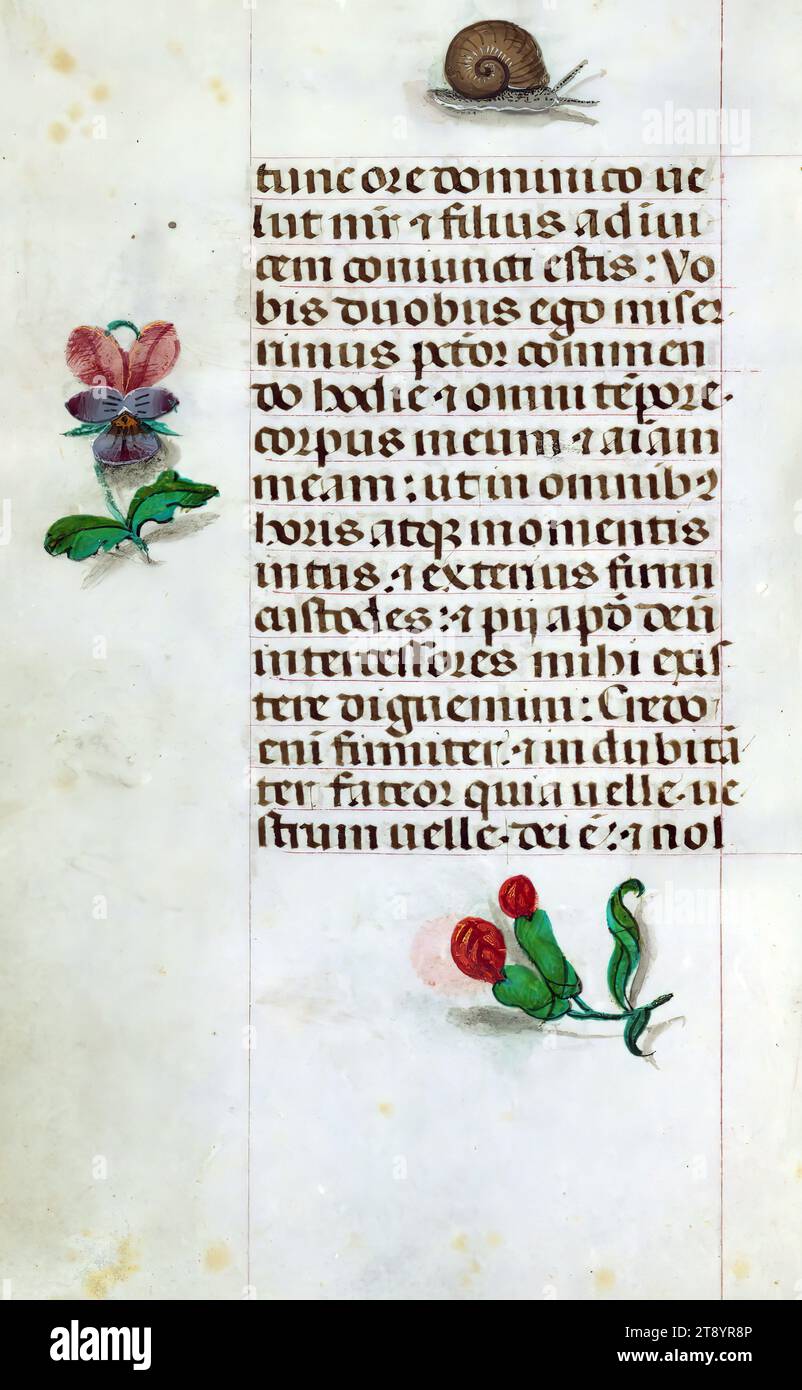 tunc ore dominico ue
lut mr̄ ⁊ filius ad inui
cem coniuncti estis : Vo
bis duobus ego miser
rimus pctōr cōmmen
do hodie ⁊ omni tēpore .
corpus meum ⁊ aīam
meam : ut in omnibꝫ
horis atqꝫ momentis
intus . ⁊ exterius firmi
custodes : ⁊ pij apd̄ deū
intercessores mihi exis
tere dignemini : Credo
enī firmiter . ⁊ indubitā
ter fateor quia uelle . ue
strum uelle . dei ē : ⁊ nol
alamy
alamy
Image ID: 2T8YR8P
www.alamy.com